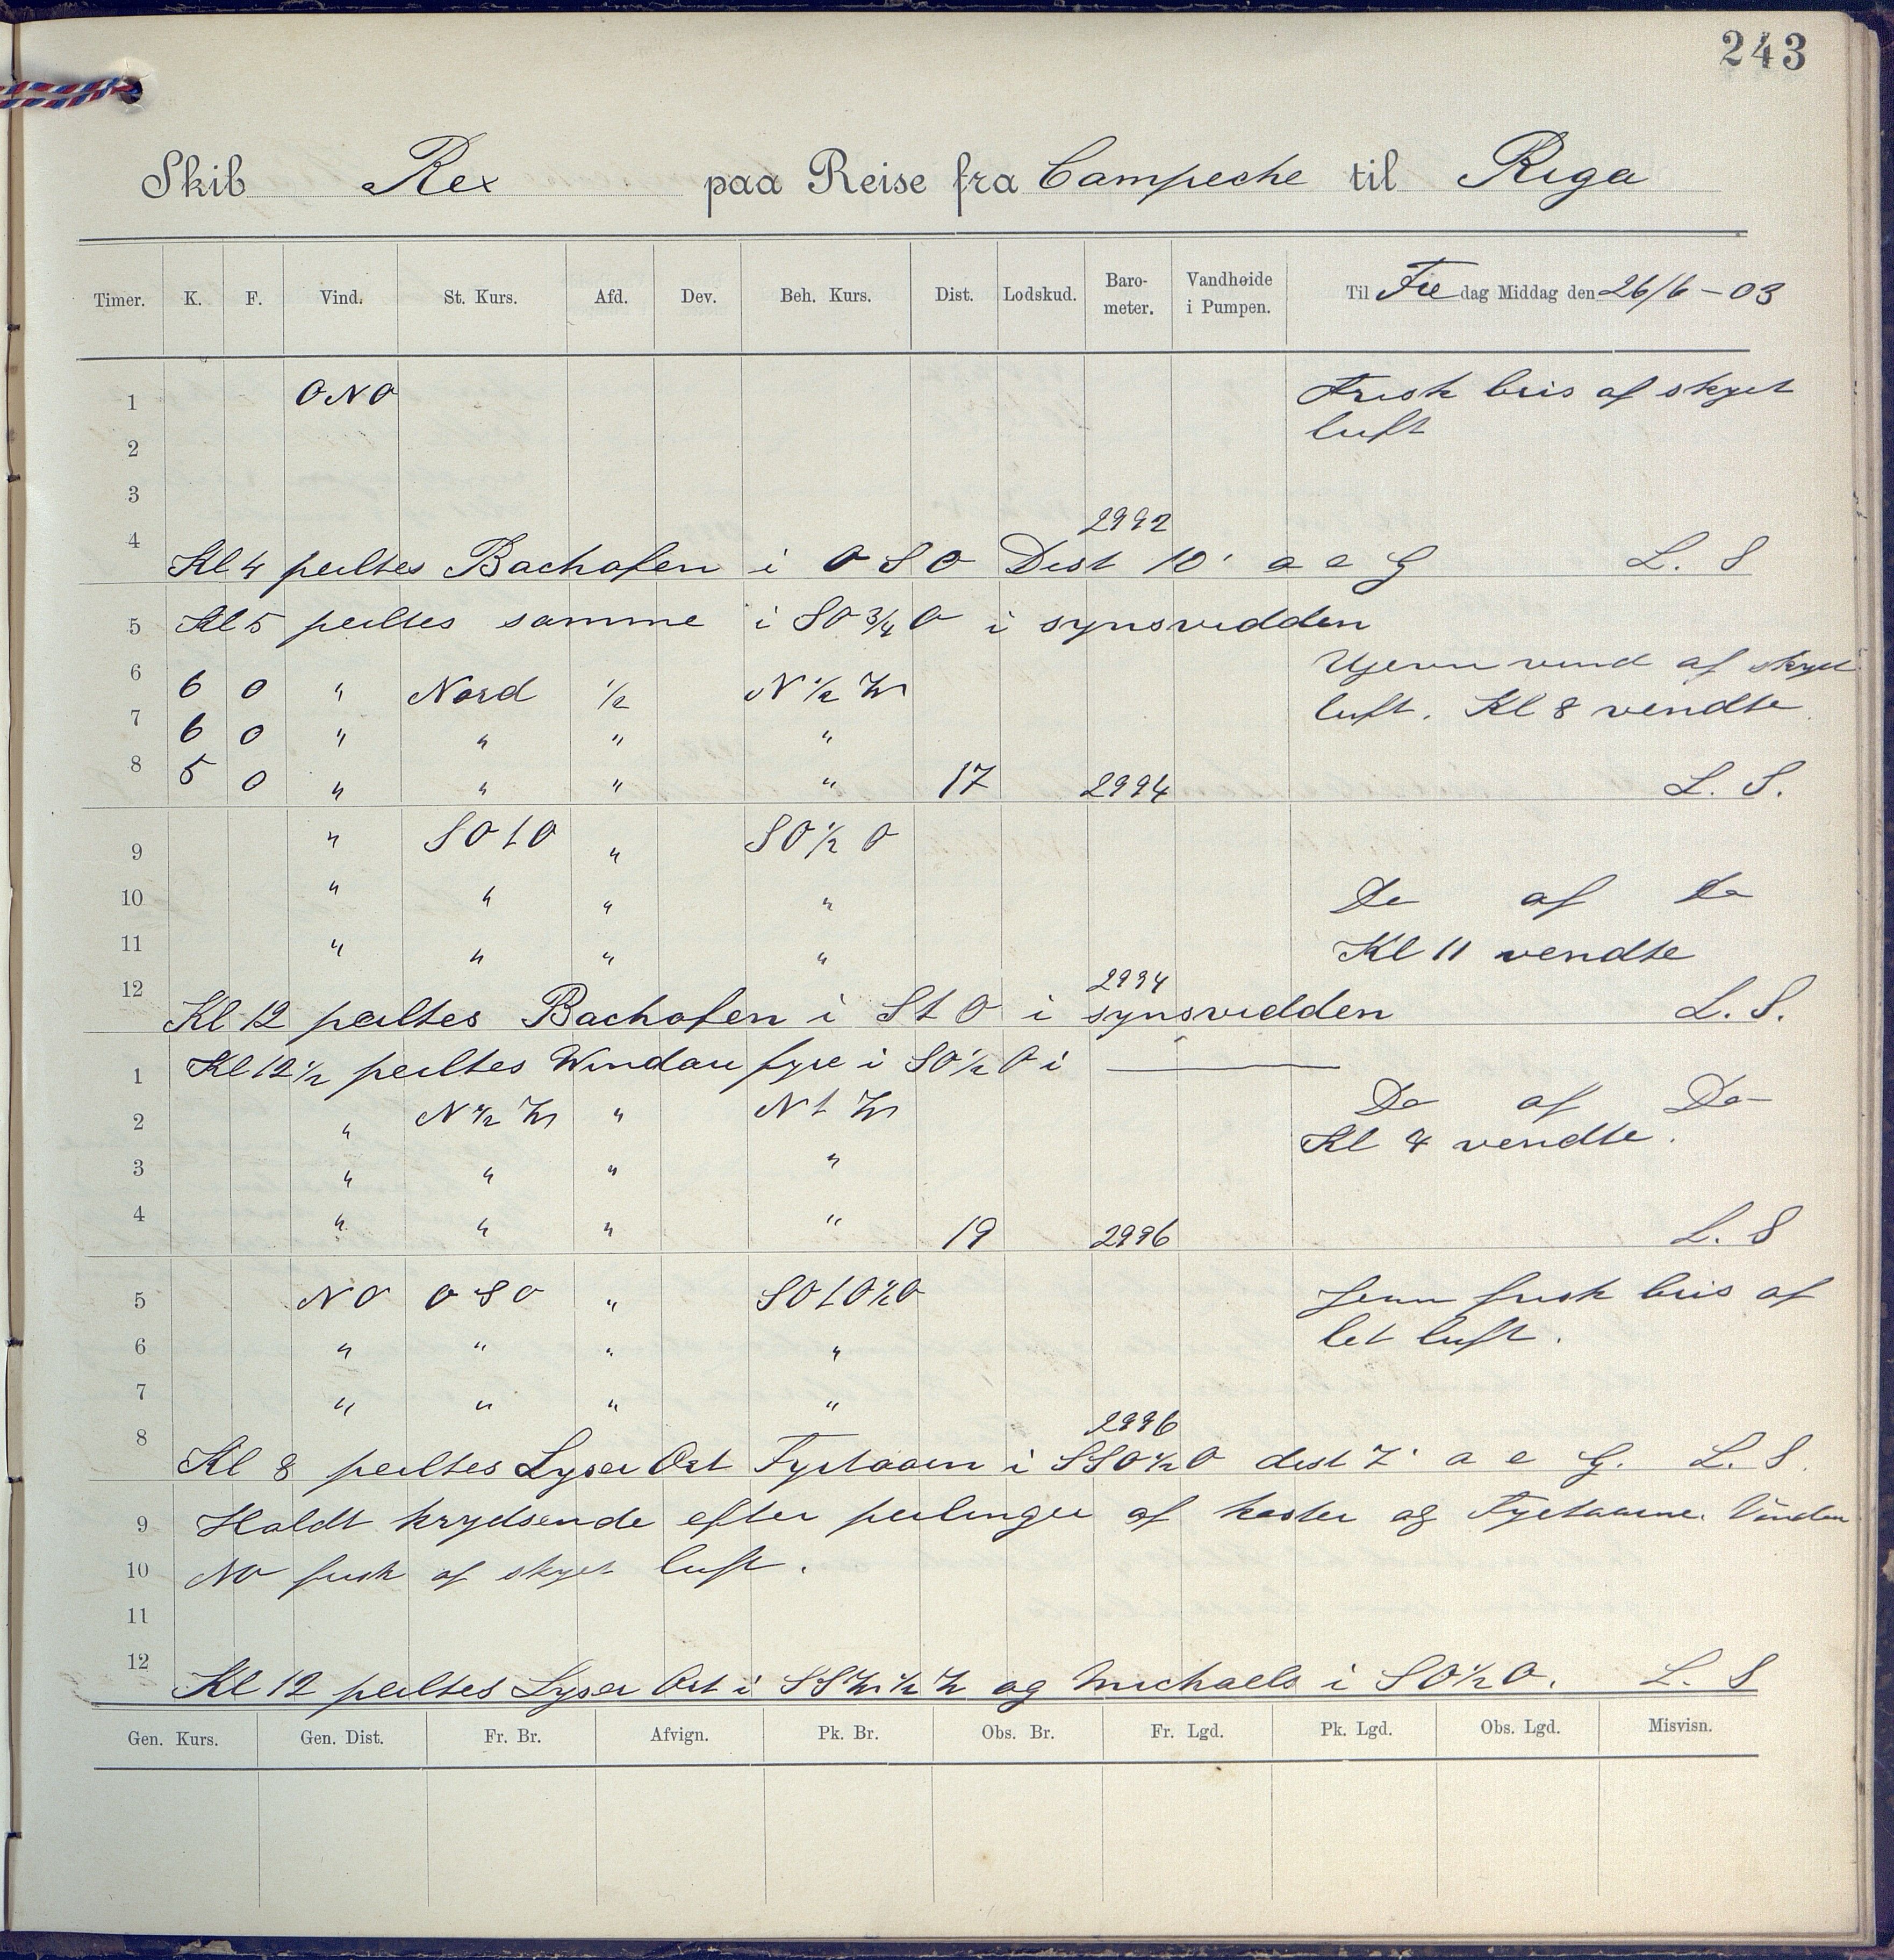 243
Skib Rex paa Reise fra Campeche til Riga
Timer. K. F. Vind. St. Kurs. Afd. Dev. Beh. Kurs. Dist. Lodskud. Baro-meter. Vandhøide i Pumpen. Til Fre dag Middag den 26/6 – 03
1 ONO Frisk bris af skyet
2 luft
3
2992
4 Kl 4 peiltes Bachofen i OSO Dist 10' a e G L. S
5 Kl 5 peiltes samme i SO 3/4 O i synsvidden
6 6 0 " Nord 1/2 N 1/2 W Ujevn vind af skyet
7 6 0 " " " " luft. Kl 8 vendte
8 5 0 " " " " 17 2994 L. S.
9 " SO t O " SO 1/2 O
10 " " " " Do af Do
11 " " " " Kl 11 vendte
2994
12 Kl 12 peiltes Bachofen i S t O i synsvidden L. S.
1 Kl 12 1/2 peiltes Windau fyre i SO 1/2 O i "
2 " N 1/2 W " N t W Do af Do
3 " " " " Kl 4 vendte.
4 " " " " 19 2996 L. S
5 NO OSO " SO t O 1/2 O Jevn frisk bris af
6 " " " " let luft.
7 " " " "
2996
8 Kl 8 peiltes Lyser Ort Fyrtaarn i SSO 1/2 O dist 7' a e G. L. S.
9 Holdt krydsende efter peilinger af kaster og Fyrtaarne. Vinden
10 NO frisk af skyet luft.
11
12 Kl 12 peiltes Lyser Ort i SSW 1/2 W og Michaels i SO 1/2 O. L. S
Gen. Kurs. Gen. Dist. Fr. Br. Afvign. Pk. Br. Obs. Br. Fr. Lgd. Pk. Lgd. Obs. Lgd. Misvisn.